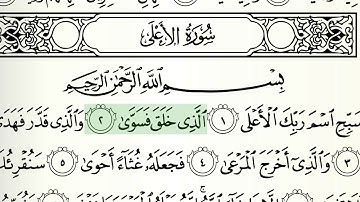 سُورَةُ الأَعْلَىٰ
بِسْمِ ٱللَّهِ ٱلرَّحْمَٰنِ ٱلرَّحِيمِ
سَبِّحِ ٱسْمَ رَبِّكَ ٱلْأَعْلَى ١ ٱلَّذِى خَلَقَ فَسَوَّىٰ ٢ وَٱلَّذِى قَدَّرَ فَهَدَىٰ
٣ وَٱلَّذِىٓ أَخْرَجَ ٱلْمَرْعَىٰ ٤ فَجَعَلَهُۥ غُثَآءً أَحْوَىٰ ٥ سَنُقْرِئُكَ